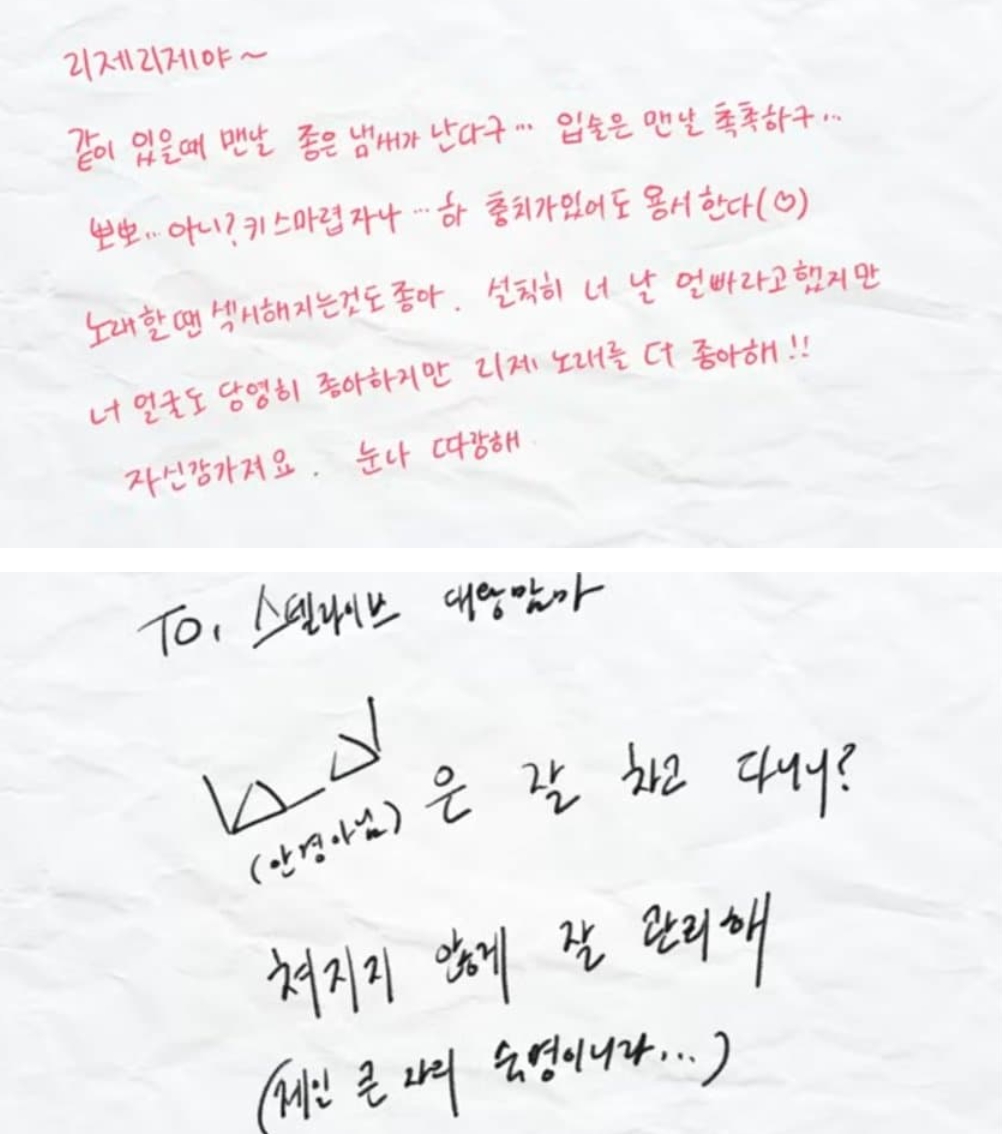 리제리제야~
같이 있을때 맨날 좋은 냄새가 난다구... 입술은 맨날 촉촉하구...
뽀뽀... 아니? 키스마렵자나 ... 하 충치가있어도 용서한다(♡)
노래할땐 섹시해지는것도 좋아. 설칙히 너 날 얼빠라고했지만
너 얼굴도 당영히 좋아하지만 리제 노래를 더 좋아해!!
자신감가져요. 눈나 따랑해
TO, 스텔라이브 대왕맘마
(안경아님) 은 잘 차고 다니니?
쳐지지 않게 잘 관리해
(제인 큰 자의 숙명이니라...)